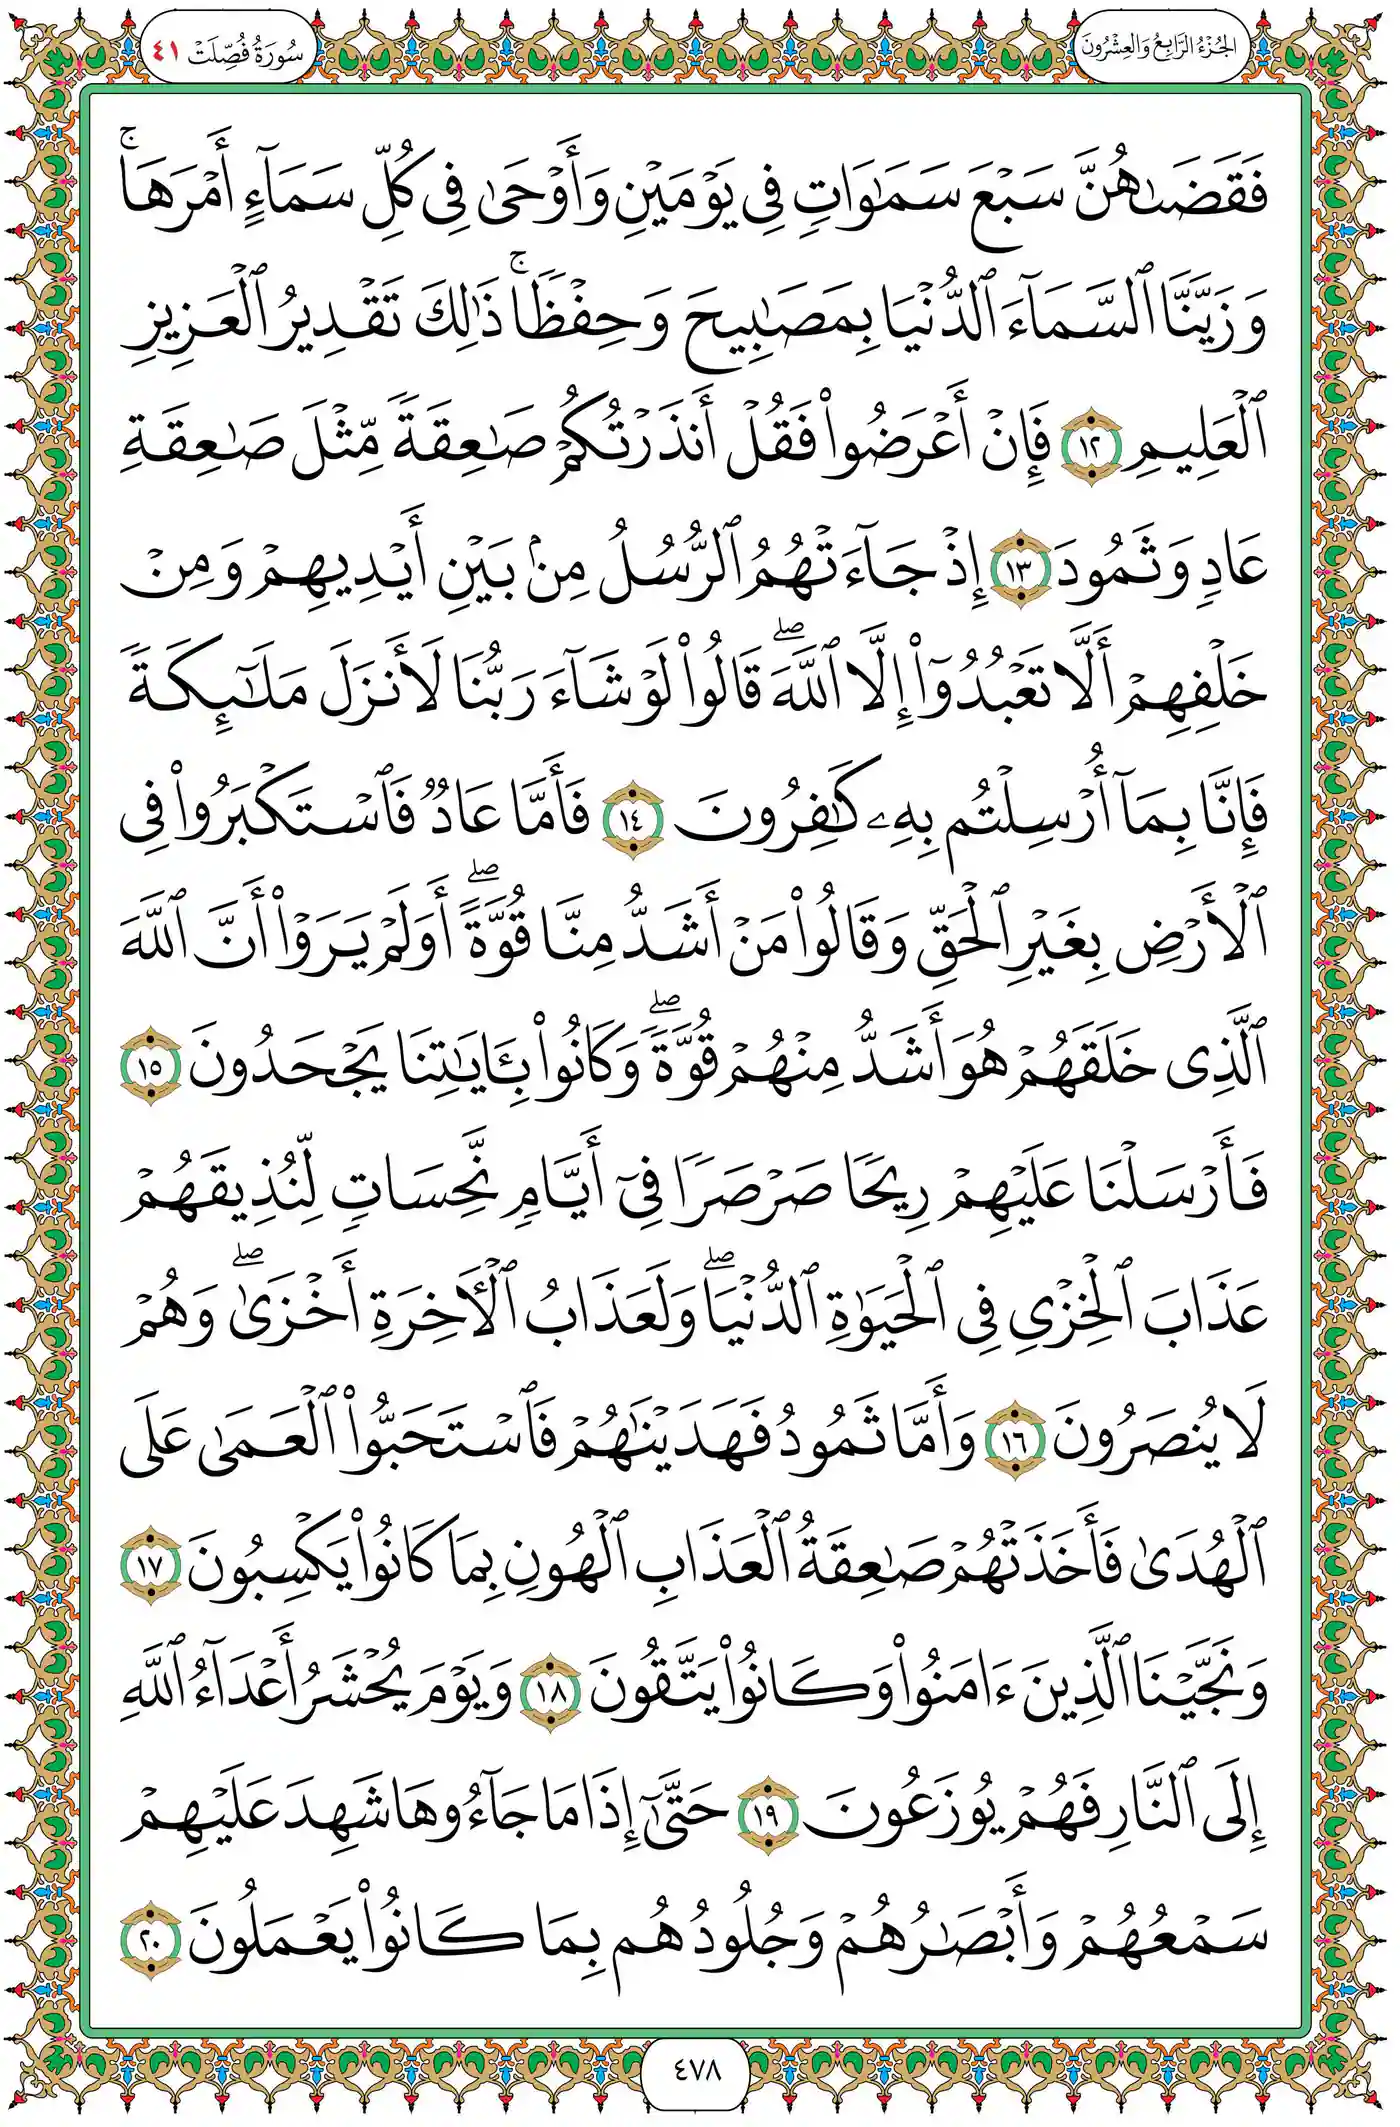 الجُزْءُ الرَّابِعُ وَالعِشْرُونَ
سُورَةُ فُصِّلَتْ ٤١
فَقَضَىٰهُنَّ سَبْعَ سَمَٰوَاتٖ فِي يَوْمَيْنِ وَأَوْحَىٰ فِي كُلِّ سَمَآءٍ أَمْرَهَاۚ
وَزَيَّنَّا ٱلسَّمَآءَ ٱلدُّنْيَا بِمَصَٰبِيحَ وَحِفْظٗاۚ ذَٰلِكَ تَقْدِيرُ ٱلْعَزِيزِ
ٱلْعَلِيمِ ١٢ فَإِنْ أَعْرَضُوا۟ فَقُلْ أَنذَرْتُكُمْ صَٰعِقَةٗ مِّثْلَ صَٰعِقَةِ
عَادٖ وَثَمُودَ ١٣ إِذْ جَآءَتْهُمُ ٱلرُّسُلُ مِنۢ بَيْنِ أَيْدِيهِمْ وَمِنْ
خَلْفِهِمْ أَلَّا تَعْبُدُوٓا۟ إِلَّا ٱللَّهَۖ قَالُوا۟ لَوْ شَآءَ رَبُّنَا لَأَنزَلَ مَلَٰٓئِكَةٗ
فَإِنَّا بِمَآ أُرْسِلْتُم بِهِۦ كَٰفِرُونَ ١٤ فَأَمَّا عَادٞ فَٱسْتَكْبَرُوا۟ فِي
ٱلْأَرْضِ بِغَيْرِ ٱلْحَقِّ وَقَالُوا۟ مَنْ أَشَدُّ مِنَّا قُوَّةًۖ أَوَلَمْ يَرَوْا۟ أَنَّ ٱللَّهَ
ٱلَّذِي خَلَقَهُمْ هُوَ أَشَدُّ مِنْهُمْ قُوَّةٗۖ وَكَانُوا۟ بِـَٔايَٰتِنَا يَجْحَدُونَ ١٥
فَأَرْسَلْنَا عَلَيْهِمْ رِيحٗا صَرْصَرٗا فِيٓ أَيَّامٖ نَّحِسَاتٖ لِّنُذِيقَهُمْ
عَذَابَ ٱلْخِزْيِ فِي ٱلْحَيَوٰةِ ٱلدُّنْيَاۖ وَلَعَذَابُ ٱلْأٓخِرَةِ أَخْزَىٰۖ وَهُمْ
لَا يُنصَرُونَ ١٦ وَأَمَّا ثَمُودُ فَهَدَيْنَٰهُمْ فَٱسْتَحَبُّوا۟ ٱلْعَمَىٰ عَلَى
ٱلْهُدَىٰ فَأَخَذَتْهُمْ صَٰعِقَةُ ٱلْعَذَابِ ٱلْهُونِ بِمَا كَانُوا۟ يَكْسِبُونَ ١٧
وَنَجَّيْنَا ٱلَّذِينَ ءَامَنُوا۟ وَكَانُوا۟ يَتَّقُونَ ١٨ وَيَوْمَ يُحْشَرُ أَعْدَآءُ ٱللَّهِ
إِلَى ٱلنَّارِ فَهُمْ يُوزَعُونَ ١٩ حَتَّىٰٓ إِذَا مَا جَآءُوهَا شَهِدَ عَلَيْهِمْ
سَمْعُهُمْ وَأَبْصَٰرُهُمْ وَجُلُودُهُم بِمَا كَانُوا۟ يَعْمَلُونَ ٢٠
٤٧٨